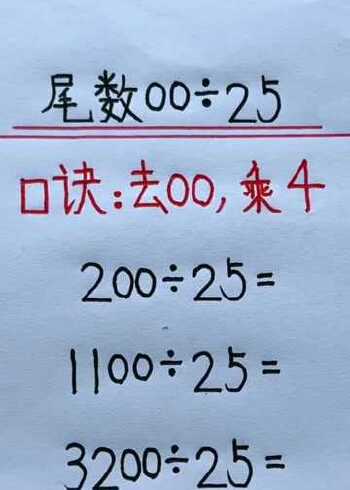 尾数00÷25
口诀:去00,乘4
200÷25=
1100÷25=
3200÷25=